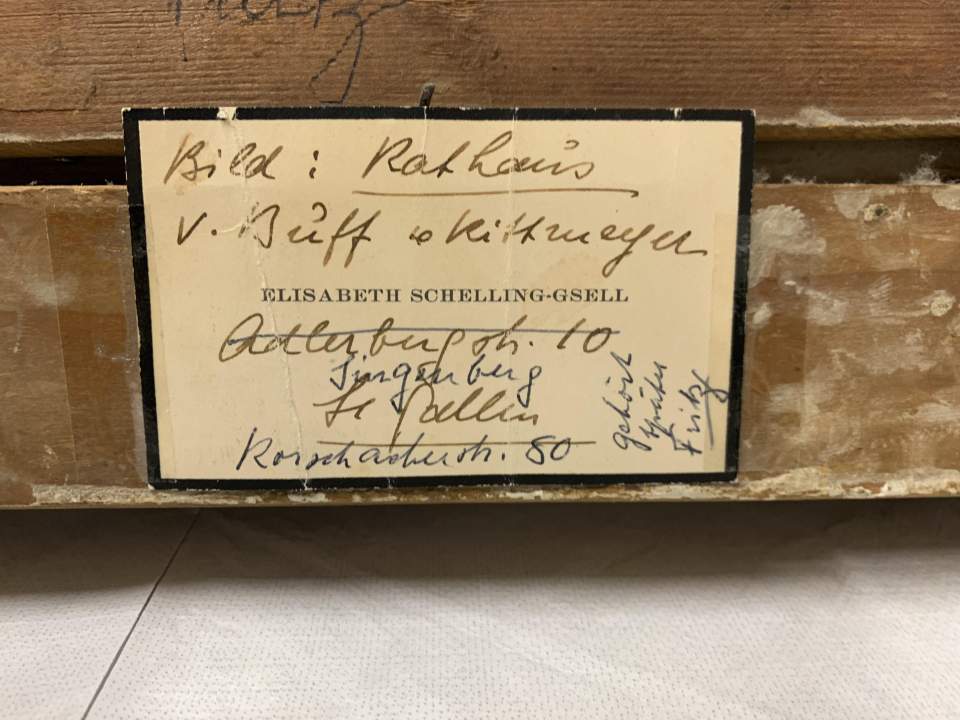 Fritz
Bild: Rathaus
v. Buff & Rittmeyer
ELISABETH SCHELLING-GSELL
Adlerbergstr. 10
Singenberg
St Gallen
Rorschacherstr. 80
gehört
später
Fritz